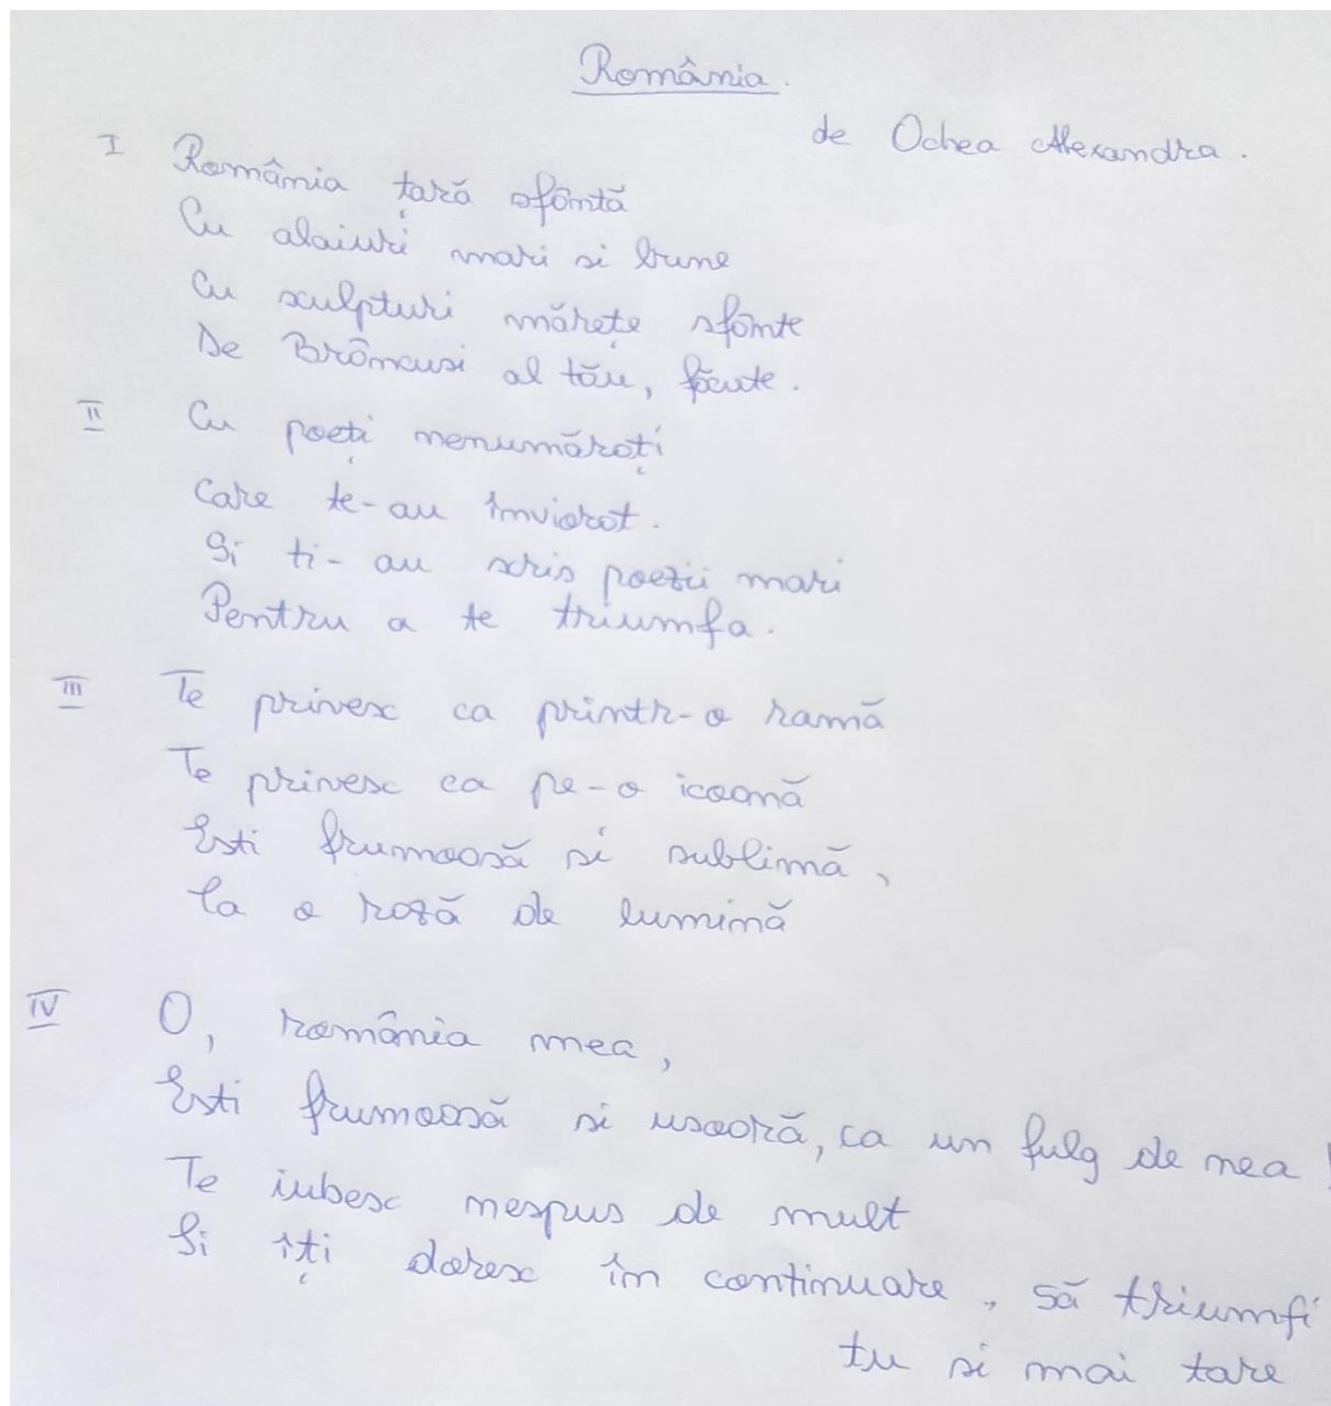 România.
de Ochea Alexandra.
I România țară sfântă
Cu alaiuri mari si bune
Cu sculpturi mărețe sfinte
De Brâncusi al tău, făcute.
II Cu poeți nenumărați
Care te-au înviorat.
Si ti-au scris poezii mari
Pentru a te triumfa.
III Te privesc ca printr-o ramă
Te privesc ca pe-o icoană
Esti frumoasă si sublimă,
Ca o rază de lumină
IV O, românia mea,
Esti frumoasă si usoară, ca un fulg de nea!
Te iubesc nespus de mult
Si îți doresc în continuare, să triumfi
tu si mai tare